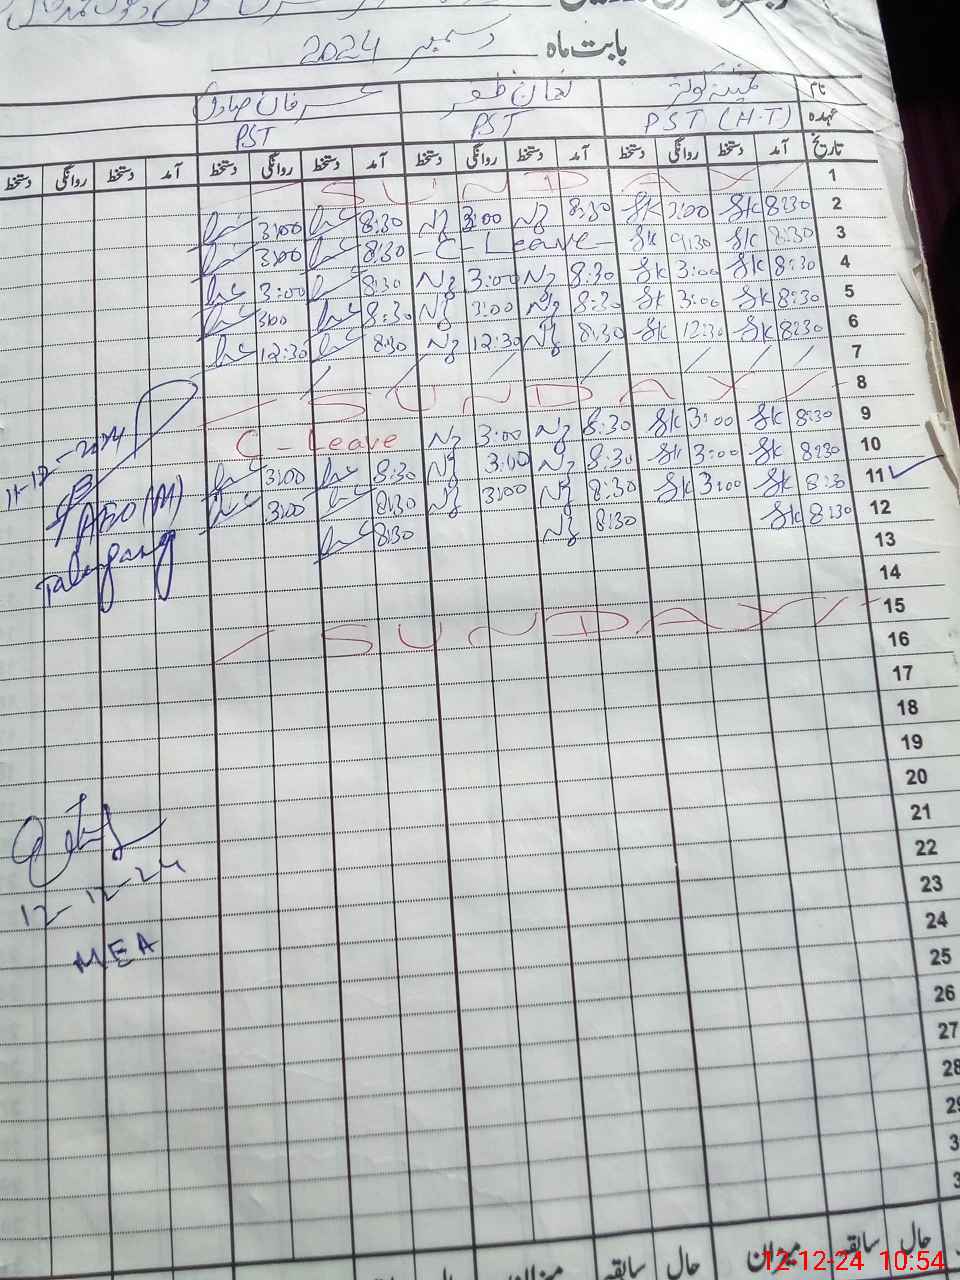 بابت ماہ دسمبر 2024
نام
عہدہ PST (H.T) PST PST
تاریخ آمد دستخط روانگی دستخط آمد دستخط روانگی دستخط آمد دستخط روانگی دستخط آمد دستخط روانگی دستخط
1 SUNDAY
2 8:30 Sk 3:00 Sk 8:30 Nz 3:00 Nz 8:30 3:00
3 8:30 Sk 9:30 Sk C-Leave 8:30 3:00
4 8:30 Sk 3:00 Sk 8:30 Nz 3:00 Nz 8:30 3:00
5 8:30 Sk 3:00 Sk 8:30 Nz 3:00 Nz 8:30 3:00
6 8:30 Sk 12:30 Sk 8:30 Nz 12:30 Nz 8:30 12:30
7
8 SUNDAY
9 8:30 Sk 3:00 Sk 8:30 Nz 3:00 Nz C-Leave
10 8:30 Sk 3:00 Sk 8:30 Nz 3:00 Nz 8:30 3:00
11 8:30 Sk 3:00 Sk 8:30 Nz 3:00 Nz 8:30 3:00
12 8:30 Sk 8:30 Nz 8:30
13
14
15 SUNDAY
16
17
18
19
20
21
22
23
24
25
26
27
28
11-12-2024
AEO (M)
Talagang
12-12-24
MEA
حال سابقہ میزان حال سابقہ میزان
12-12-24 10:54